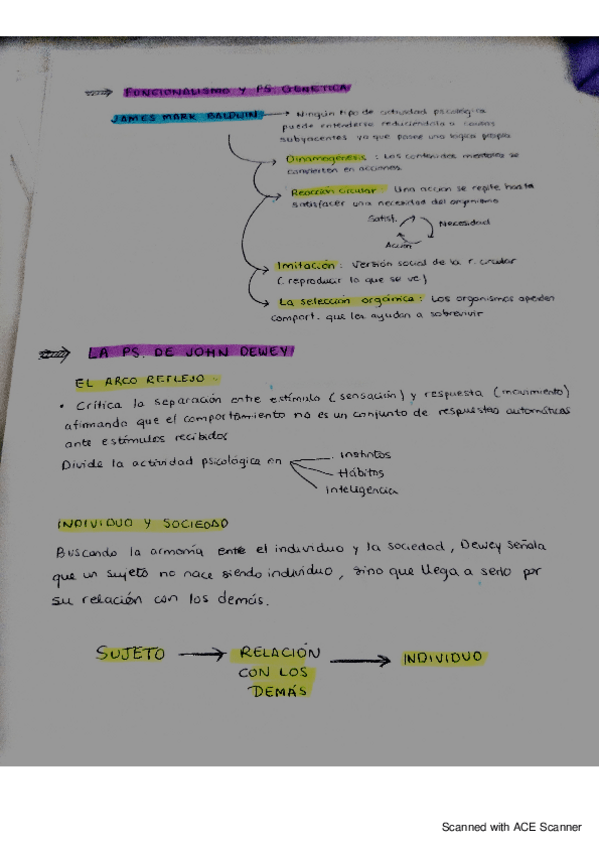 FUNCIONALISMO Y PS. GENÉTICA
JAMES MARK BALDWIN → Ningún tipo de actividad psicológica
puede entenderse reduciéndola a causas
subyacentes ya que posee una lógica propia
Dinamogénesis : Los contenidos mentales se
convierten en acciones.
Reacción circular : Una acción se repite hasta
satisfacer una necesidad del organismo
Satisf.
Necesidad
Acción
Imitación : Versión social de la r. circular
(reproducir lo que se ve)
La selección orgánica : Los organismos aprenden
comport. que les ayudan a sobrevivir
LA PS. DE JOHN DEWEY
EL ARCO REFLEJO
• Critica la separación entre estímulo (sensación) y respuesta (movimiento)
afirmando que el comportamiento no es un conjunto de respuestas automáticas
ante estímulos recibidos
Divide la actividad psicológica en
Instintos
Hábitos
Inteligencia
INDIVIDUO Y SOCIEDAD
Buscando la armonía entre el individuo y la sociedad, Dewey señala
que un sujeto no nace siendo individuo, sino que llega a serlo por
su relación con los demás.
SUJETO → RELACIÓN → INDIVIDUO
CON LOS
DEMÁS
Scanned with ACE Scanner